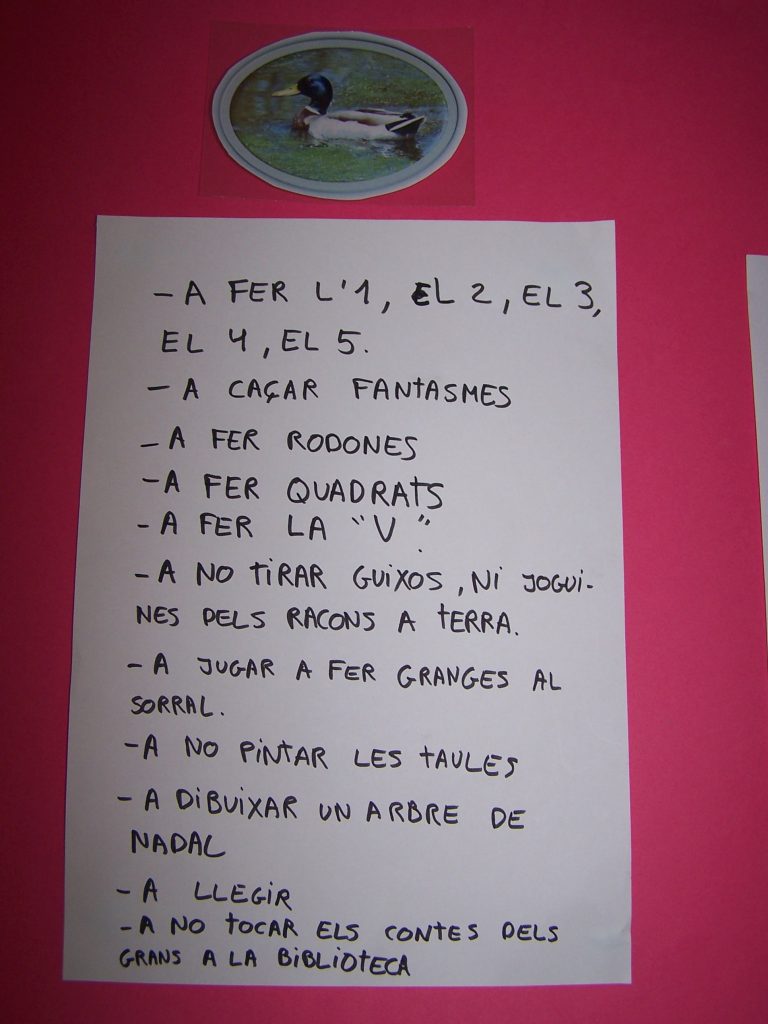 - A FER L'1, EL 2, EL 3,
EL 4, EL 5.
- A CAÇAR FANTASMES
- A FER RODONES
- A FER QUADRATS
- A FER LA "V"
- A NO TIRAR GUIXOS, NI JOGUI-
NES DELS RACONS A TERRA.
- A JUGAR A FER GRANGES AL
SORRAL.
- A NO PINTAR LES TAULES
- A DIBUIXAR UN ARBRE DE
NADAL
- A LLEGIR
- A NO TOCAR ELS CONTES DELS
GRANS A LA BIBLIOTECA